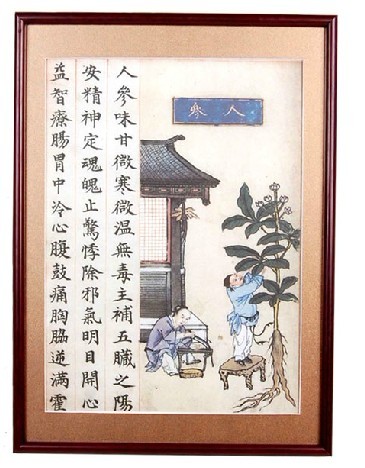 人寒
人參味甘微寒微溫無毒主補五臟之陽
安精神定魂魄止驚悸除邪氣明目開心
益智療腸胃中冷心腹鼓痛胸脇逆滿霍